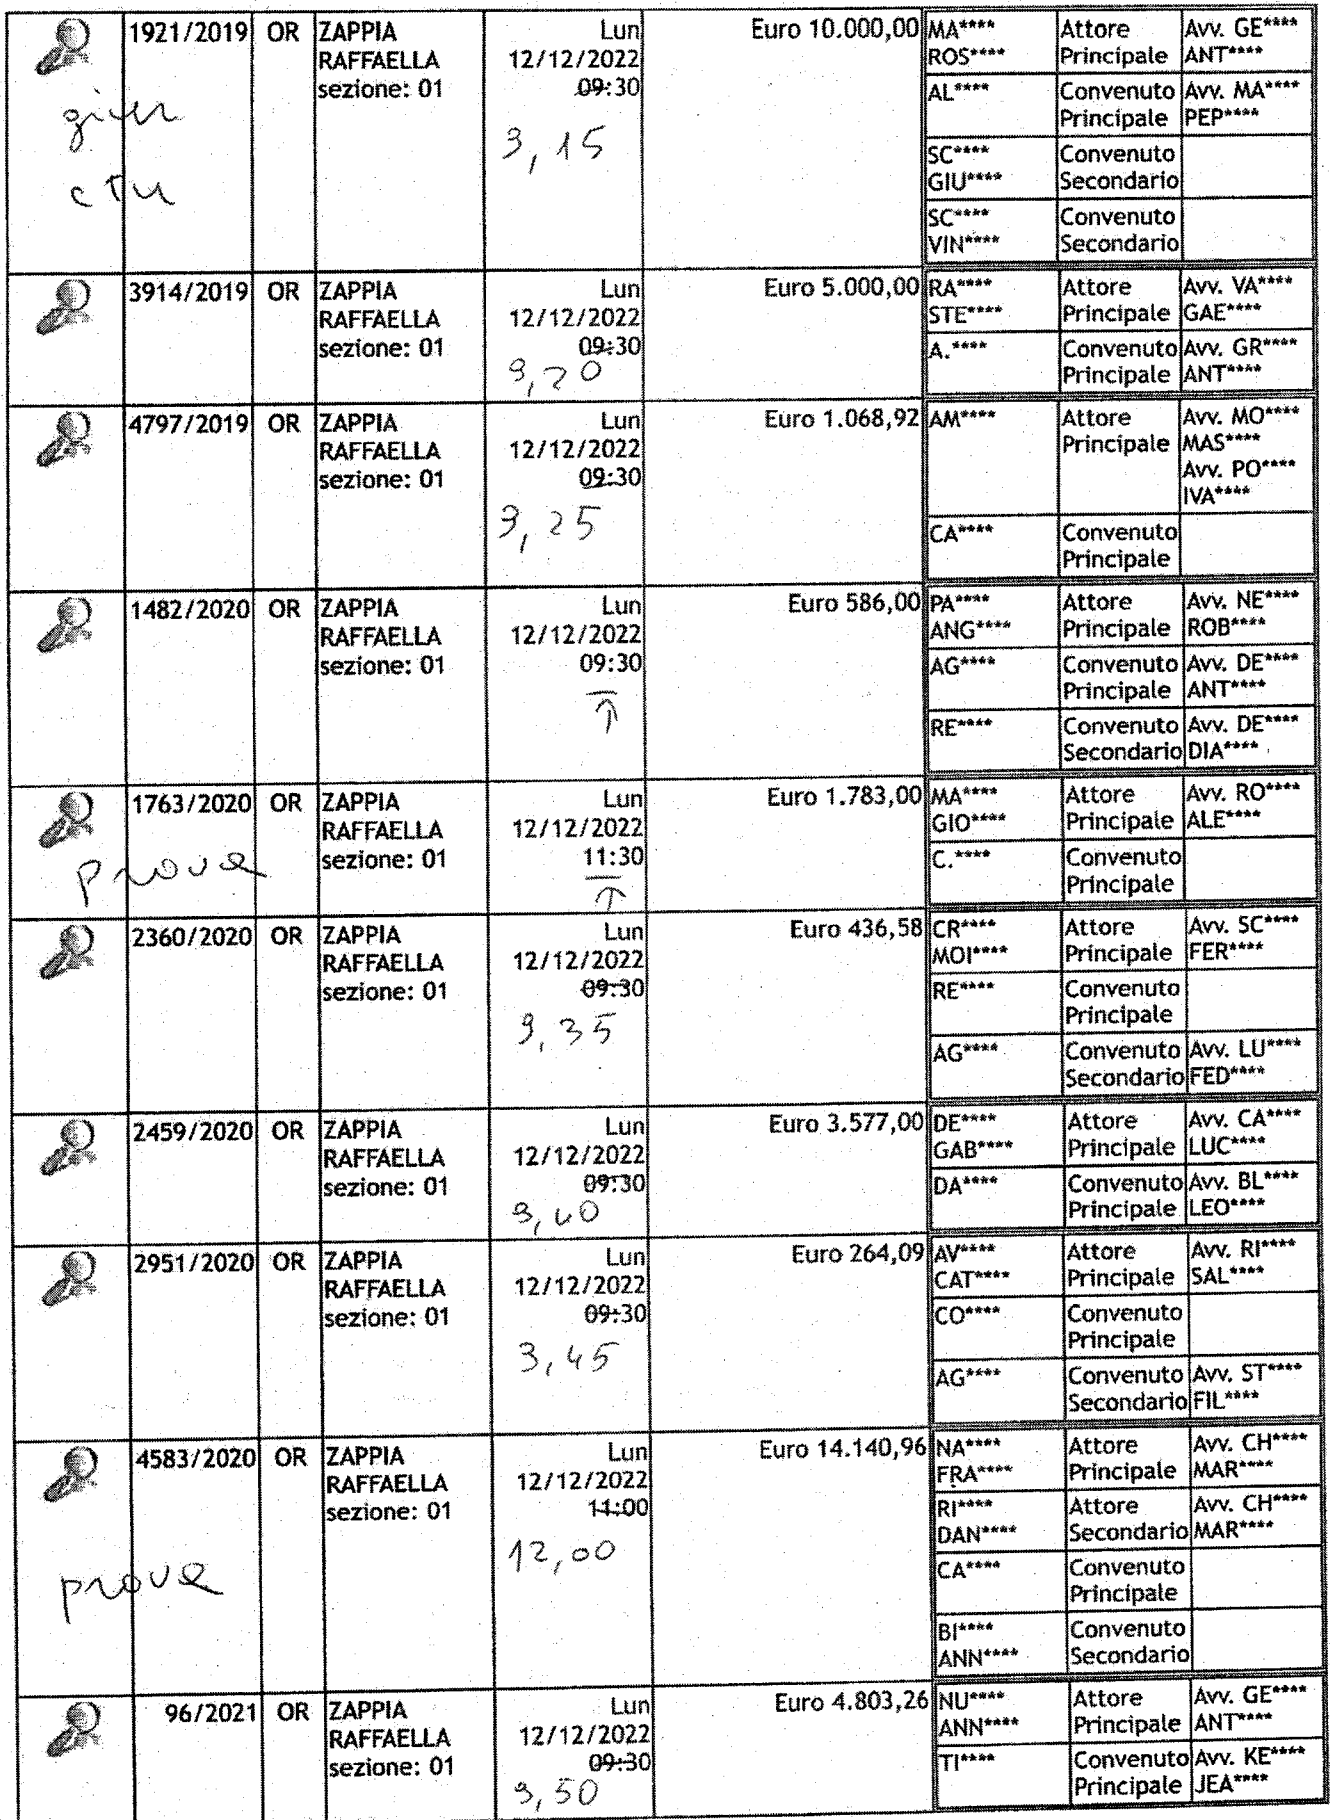 1921/2019 OR ZAPPIA RAFFAELLA sezione: 01 Lun 12/12/2022 09:30 Euro 10.000,00
giur
ctu
9,15
MA**** ROS**** Attore Principale Avv. GE**** ANT****
AL**** Convenuto Principale Avv. MA**** PEP****
SC**** GIU**** Convenuto Secondario
SC**** VIN**** Convenuto Secondario
3914/2019 OR ZAPPIA RAFFAELLA sezione: 01 Lun 12/12/2022 09:30 Euro 5.000,00
9,20
RA**** STE**** Attore Principale Avv. VA**** GAE****
A.**** Convenuto Principale Avv. GR**** ANT****
4797/2019 OR ZAPPIA RAFFAELLA sezione: 01 Lun 12/12/2022 09:30 Euro 1.068,92
9,25
AM**** Attore Principale Avv. MO**** MAS**** Avv. PO**** IVA****
CA**** Convenuto Principale
1482/2020 OR ZAPPIA RAFFAELLA sezione: 01 Lun 12/12/2022 09:30 Euro 586,00
PA**** ANG**** Attore Principale Avv. NE**** ROB****
AG**** Convenuto Principale Avv. DE**** ANT****
RE**** Convenuto Secondario Avv. DE**** DIA****
1763/2020 OR ZAPPIA RAFFAELLA sezione: 01 Lun 12/12/2022 11:30 Euro 1.783,00
prova
MA**** GIO**** Attore Principale Avv. RO**** ALE****
C.**** Convenuto Principale
2360/2020 OR ZAPPIA RAFFAELLA sezione: 01 Lun 12/12/2022 09:30 Euro 436,58
9,35
CR**** MOI**** Attore Principale Avv. SC**** FER****
RE**** Convenuto Principale
AG**** Convenuto Secondario Avv. LU**** FED****
2459/2020 OR ZAPPIA RAFFAELLA sezione: 01 Lun 12/12/2022 09:30 Euro 3.577,00
9,40
DE**** GAB**** Attore Principale Avv. CA**** LUC****
DA**** Convenuto Principale Avv. BL**** LEO****
2951/2020 OR ZAPPIA RAFFAELLA sezione: 01 Lun 12/12/2022 09:30 Euro 264,09
9,45
AV**** CAT**** Attore Principale Avv. RI**** SAL****
CO**** Convenuto Principale
AG**** Convenuto Secondario Avv. ST**** FIL****
4583/2020 OR ZAPPIA RAFFAELLA sezione: 01 Lun 12/12/2022 11:00 Euro 14.140,96
12,00
prova
NA**** FRA**** Attore Principale Avv. CH**** MAR****
RI**** DAN**** Attore Secondario Avv. CH**** MAR****
CA**** Convenuto Principale
BI**** ANN**** Convenuto Secondario
96/2021 OR ZAPPIA RAFFAELLA sezione: 01 Lun 12/12/2022 09:30 Euro 4.803,26
9,50
NU**** ANN**** Attore Principale Avv. GE**** ANT****
TI**** Convenuto Principale Avv. KE**** JEA****